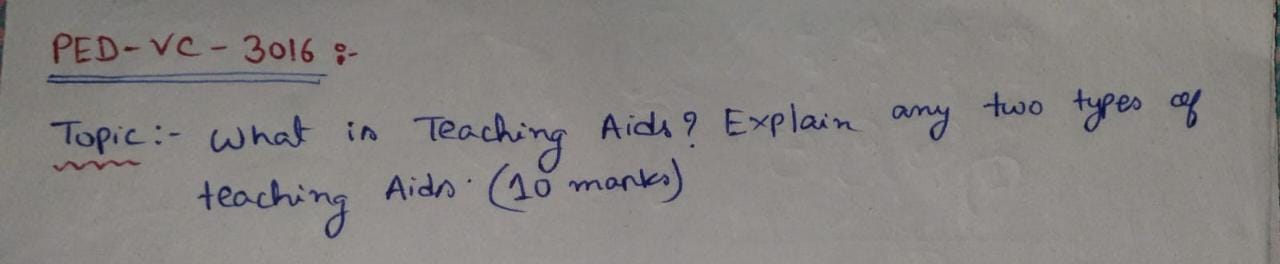 PED-VC-3016 :-
Topic:- What is Teaching Aids? Explain any two types of
teaching Aids. (10 marks)